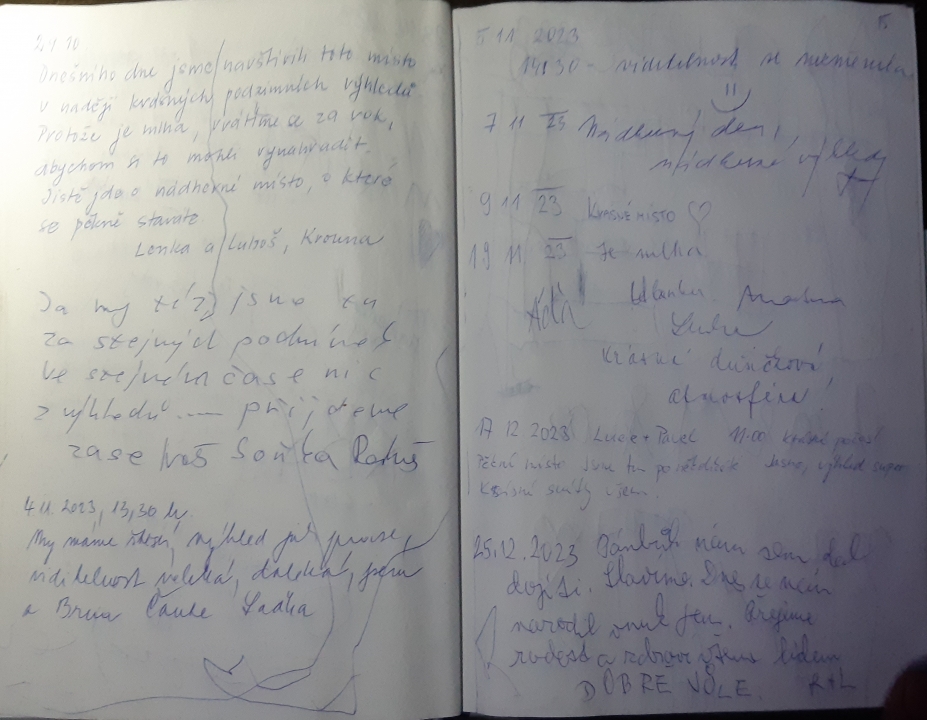 24 10
Dnešního dne jsme navštívili toto místo
v naději krásných podzimních výhledů
Protože je mlha, vrátíme se za rok,
abychom si to mohli vynahradit.
Jistě jde o nádherné místo, o které
se pěkně staráte
Lenka a Luboš, Krouna
Ja my též jsme tu
za stejných podmínek
ve stejném čase nic
z výhledu ..... přijdeme
zase
4 11. 2023, 13,30 h.
My máme štěstí, výhled jak prase,
viditelnost veliká, daleká, jsem
z Brna
5 11 2023
14:30 - viditelnost se nezměnila
7 11 23 Nádherný den,
nádherné výhledy
9 11 23 Krásné místo ♡
19 11 23 Je mlha
Krásná dušičková
atmosféra!
17 12 2023 Lucie + Pavel 11:00 krásné počasí
Pěkné místo jsme tu Jasno, výhled super
Krásné svátky všem.
25.12.2023 nám sem dal
dojíti. Slavíme. Dnes se nám
narodil vnuk Jan. Přejeme
radost a zdraví všem lidem
DOBRÉ VŮLE.